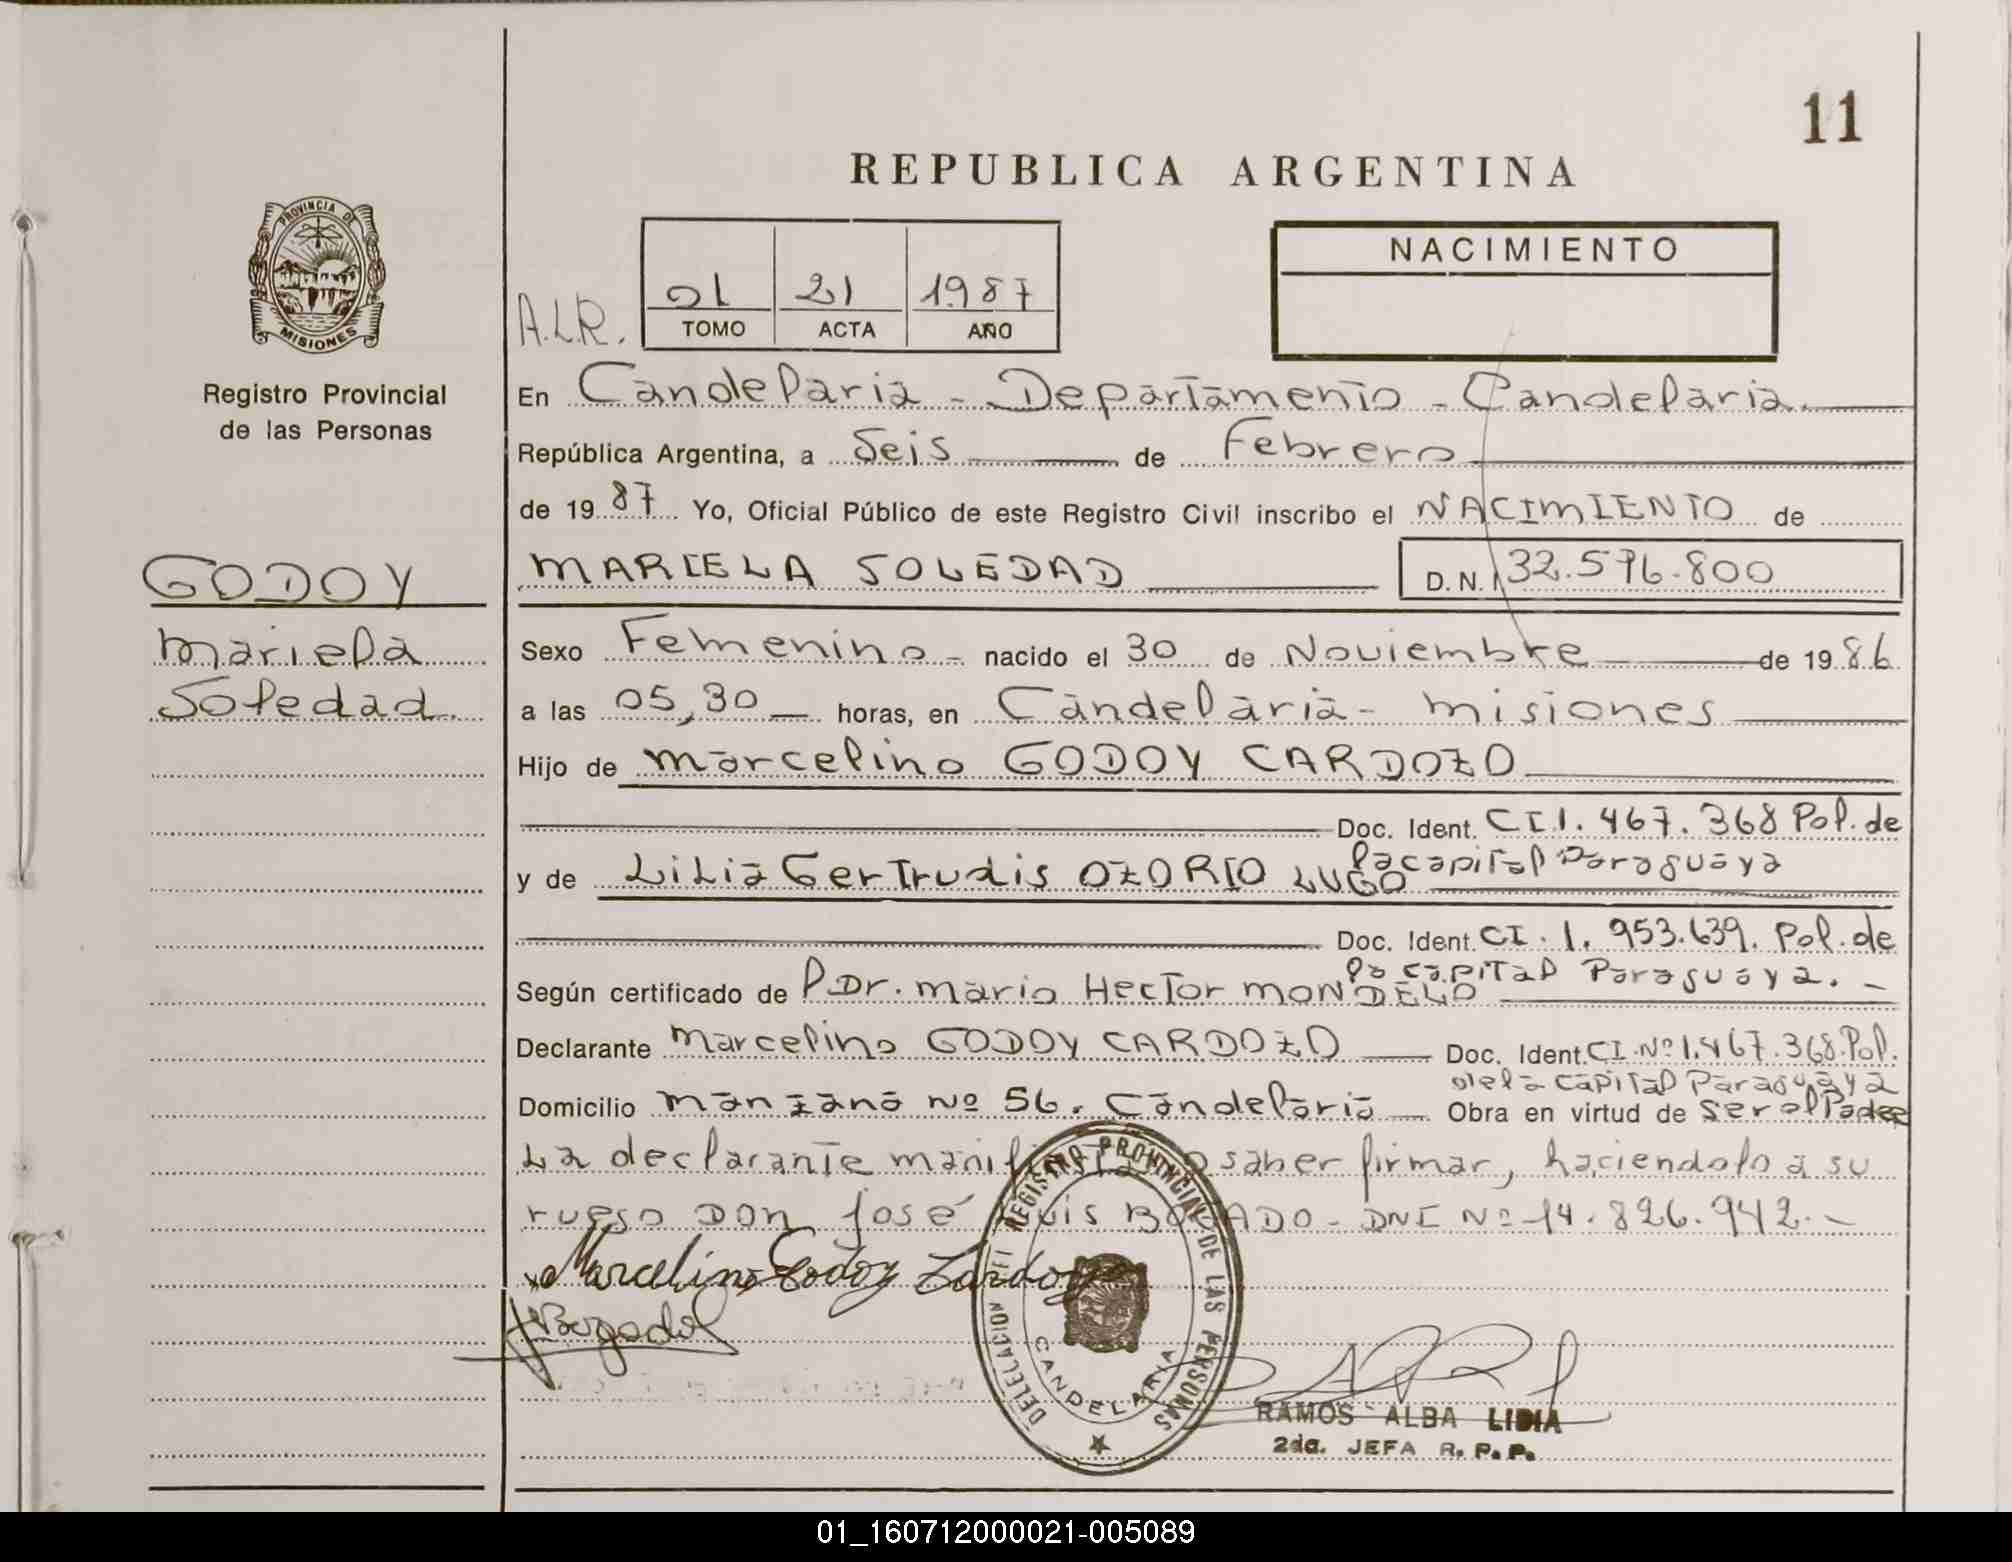 11
REPUBLICA ARGENTINA
PROVINCIA DE
MISIONES
Registro Provincial
de las Personas
NACIMIENTO
A.L.R.
01 21 1987
TOMO ACTA AÑO
En Candelaria - Departamento - Candelaria.
República Argentina, a Seis de Febrero
de 19 87 Yo, Oficial Público de este Registro Civil inscribo el NACIMIENTO de
GODOY
Mariela
Soledad.
MARIELA SOLEDAD D.N.I 32.596.800
Sexo Femenino - nacido el 30 de Noviembre de 19 86
a las 05,30 horas, en Candelaria - Misiones
Hijo de Marcelino GODOY CARDOZO
Doc. Ident. CI 1.467.368 Pol. de
la capital Paraguaya
y de Lilia Gertrudis OZORIO LUGO
Doc. Ident. CI. 1.953.639. Pol. de
la capital Paraguaya. -
Según certificado de Dr. Mario Hector MONDELO
Declarante Marcelino GODOY CARDOZO Doc. Ident. CI Nº 1.467.368 Pol.
de la capital Paraguaya
Domicilio Manzana Nº 56. Candelaria Obra en virtud de Ser
La declarante saber firmar, haciendolo a su
ruego DON José Luis BOGADO - DNI Nº 14.826.942. -
Marcelino Godoy Cardozo
JBogado
REGISTRO PROVINCIAL DE LAS PERSONAS
CANDELARIA
RAMOS ALBA LIDIA
2da. JEFA R. P. P.
01_160712000021-005089